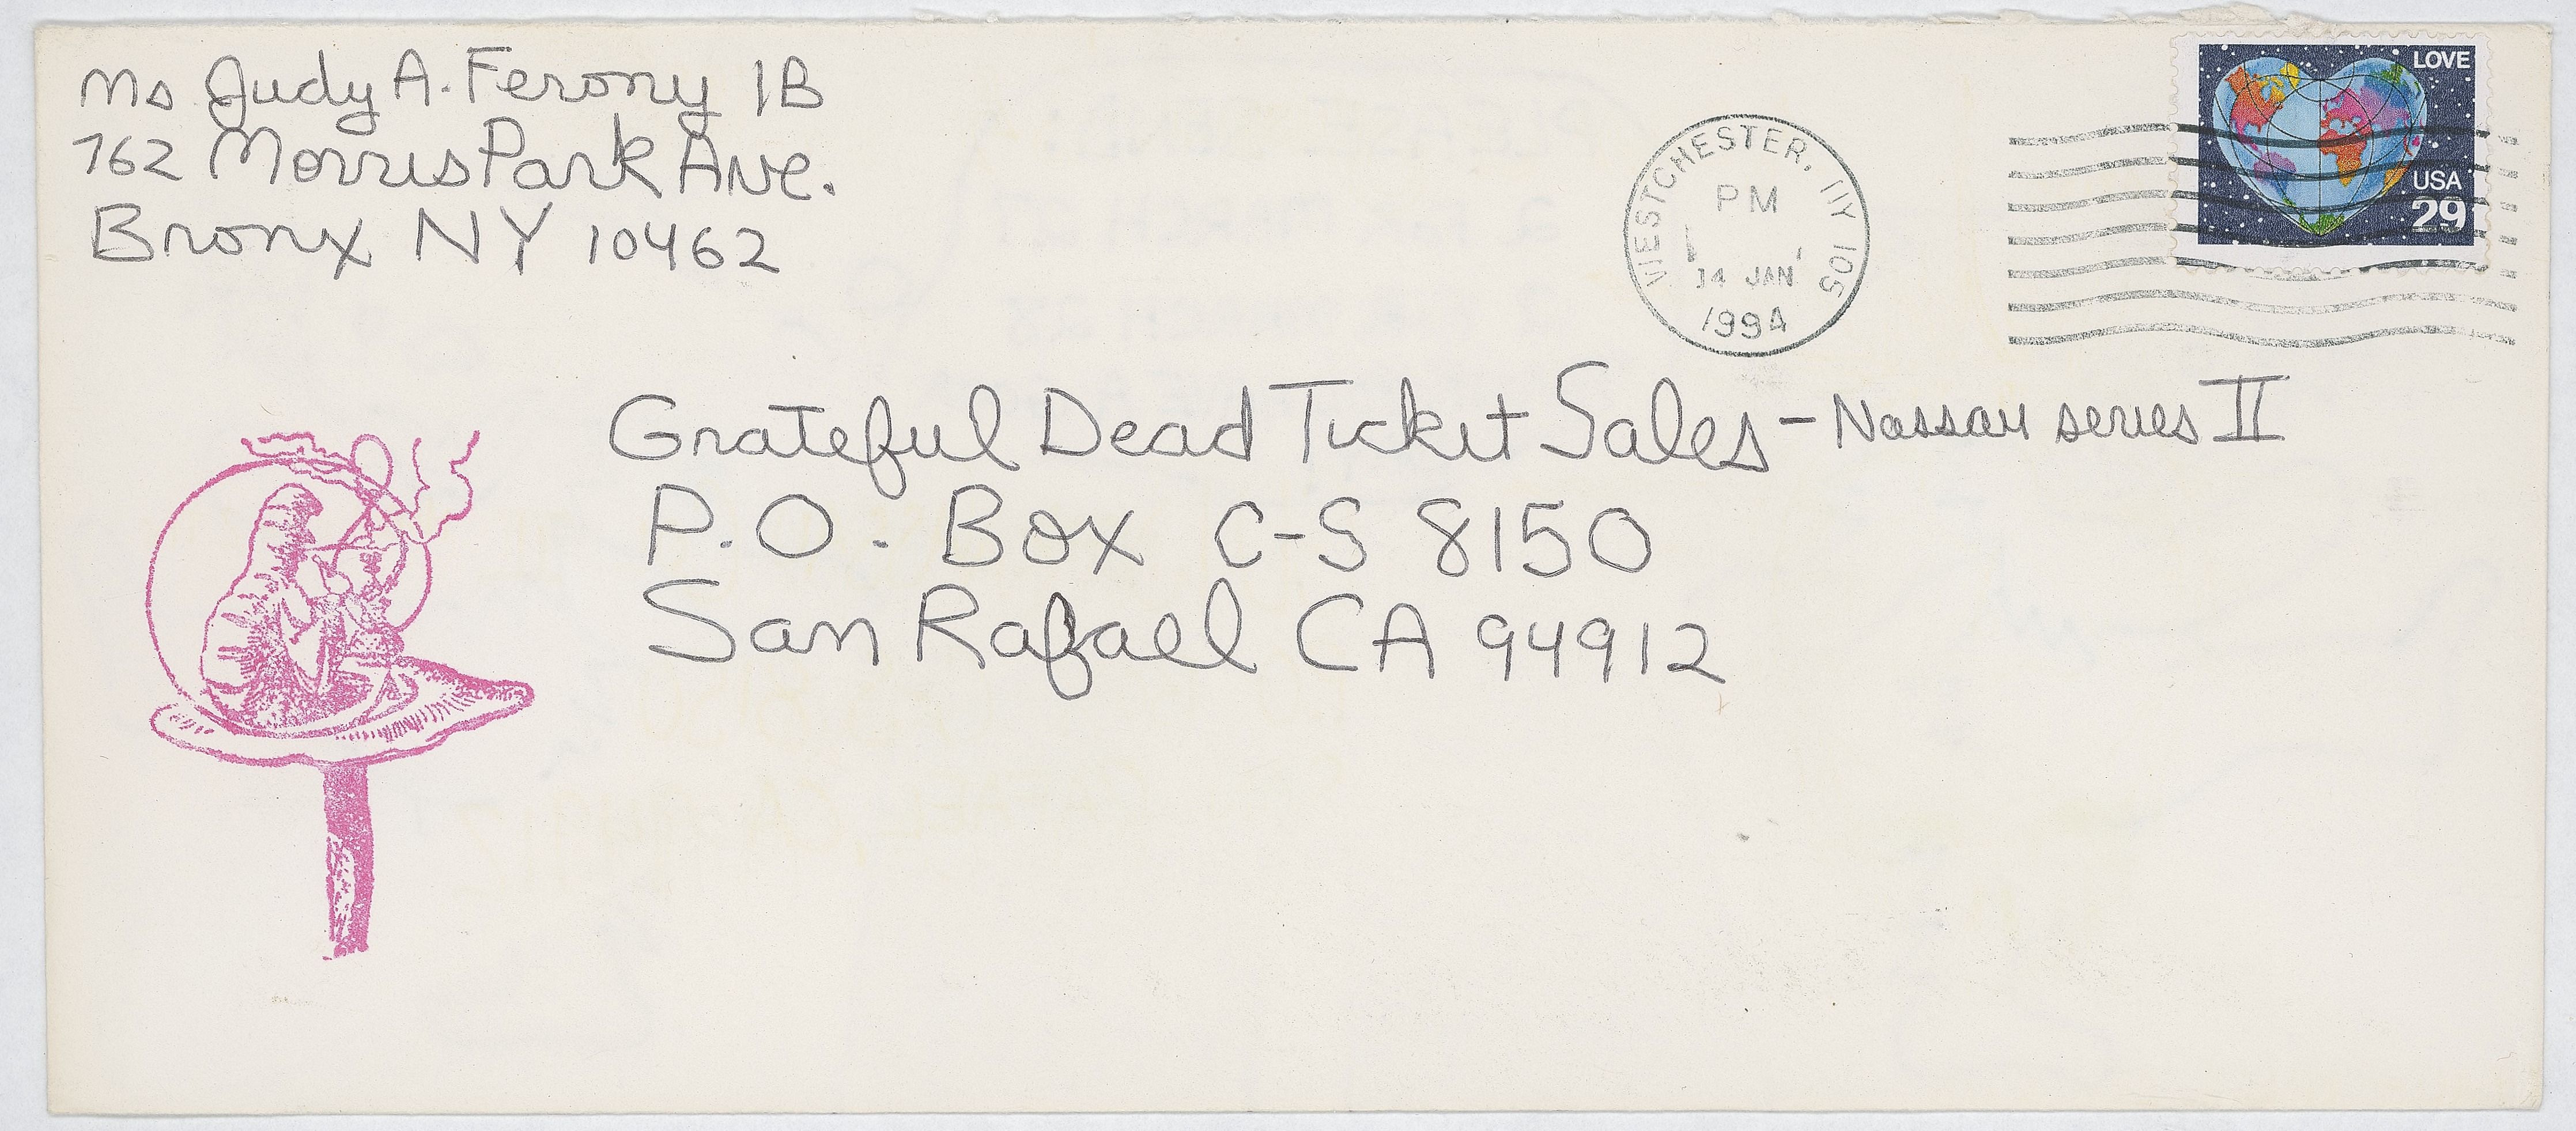 Ms Judy A. Ferony 1B
762 Morris Park Ave.
Bronx NY 10462
LOVE
USA
29
WESTCHESTER, NY 105
PM
14 JAN
1994
Grateful Dead Ticket Sales - Nassau series II
P.O. Box C-S 8150
San Rafael CA 94912